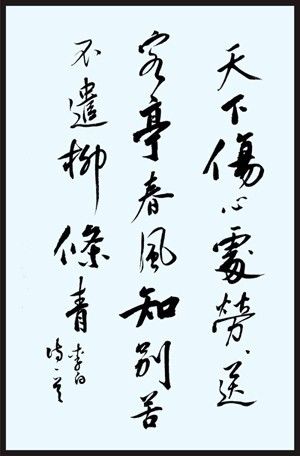 天下傷心處勞勞送
客亭春風知別苦
不遣柳條青
李白
詩一首